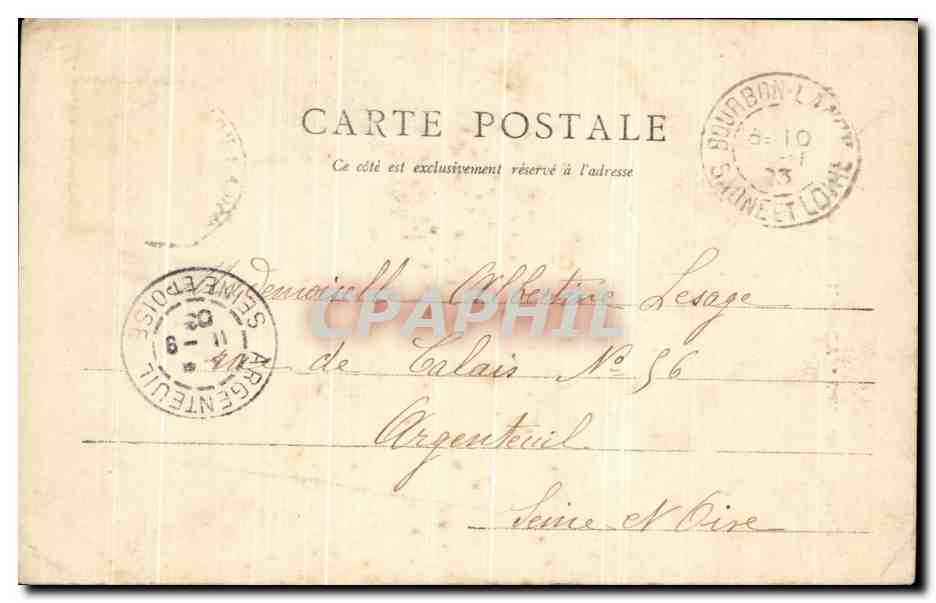 CARTE POSTALE
Ce côté est exclusivement réservé à l'adresse
BOURBON-LANCY
10
03
SAONE ET LOIRE
Mademoiselle Albertine Lesage
rue de Calais No 56
Argenteuil
Seine et Oise
ARGENTEUIL
11 - 9
03
SEINE ET OISE
CPAPHIL